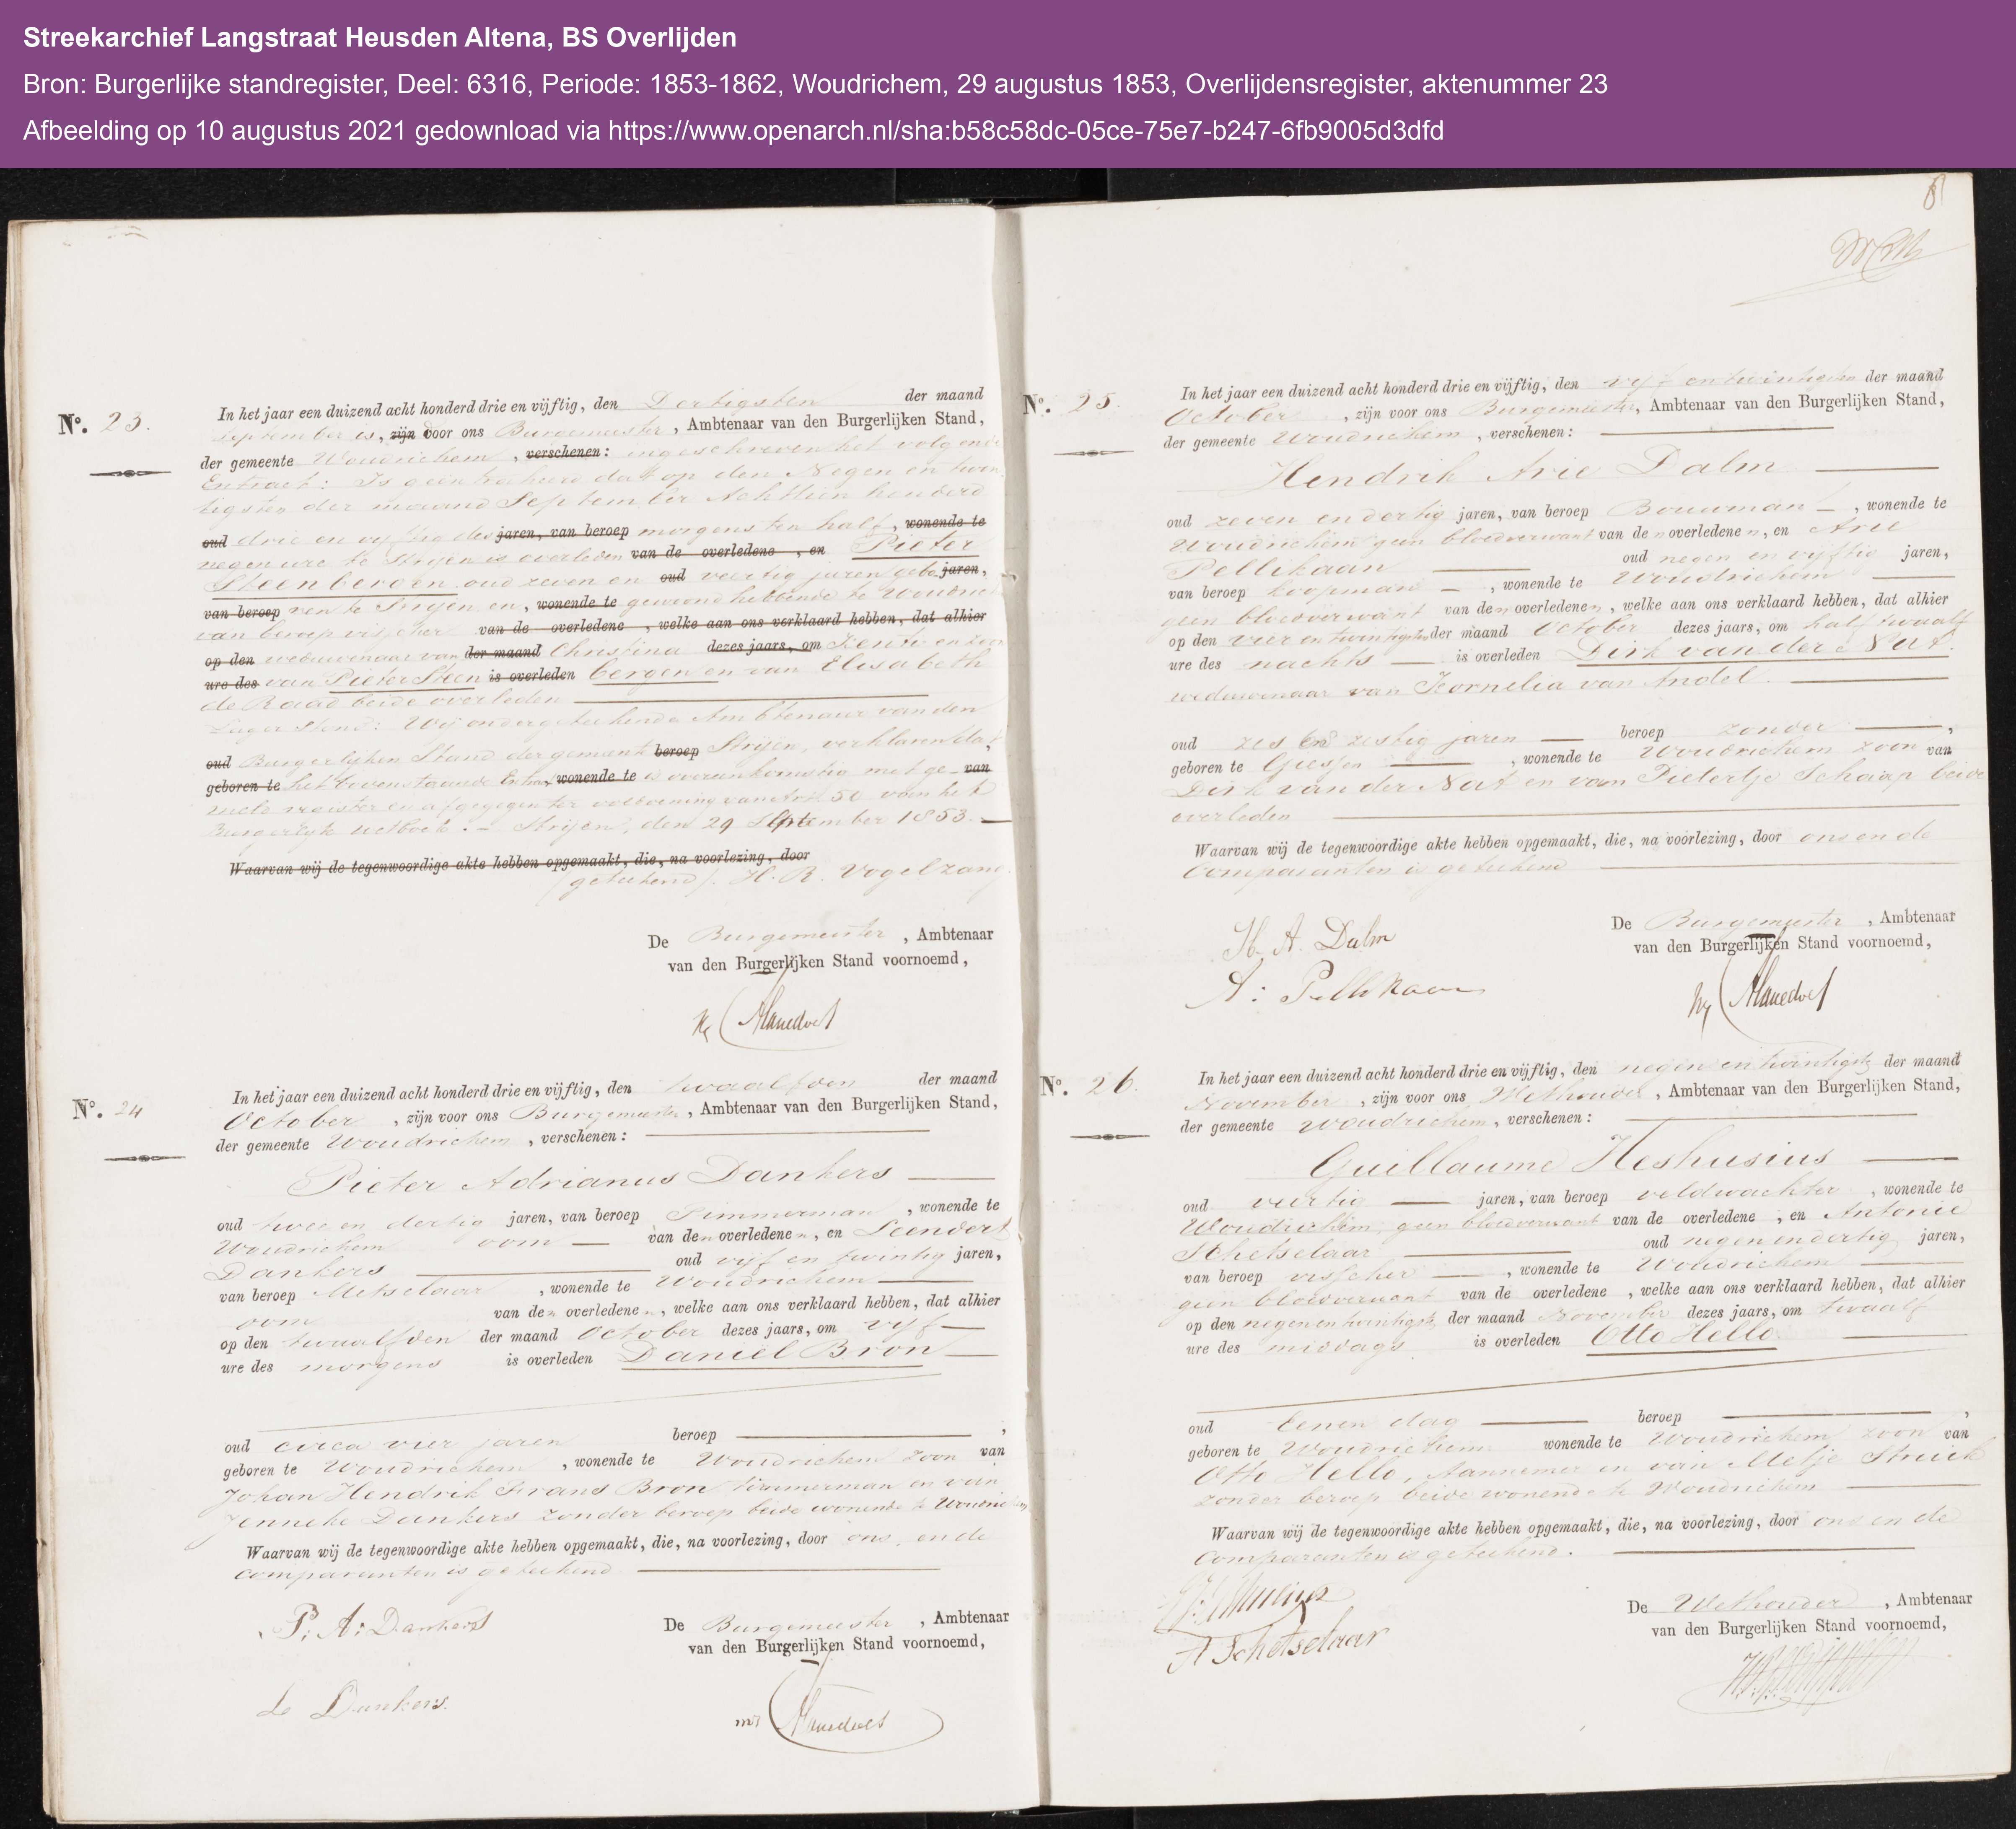 Streekarchief Langstraat Heusden Altena, BS Overlijden
Bron: Burgerlijke standregister, Deel: 6316, Periode: 1853-1862, Woudrichem, 29 augustus 1853, Overlijdensregister, aktenummer 23
Afbeelding op 10 augustus 2021 gedownload via https://www.openarch.nl/sha:b58c58dc-05ce-75e7-b247-6fb9005d3dfd
No. 23.
In het jaar een duizend acht honderd drie en vijftig, den Dertigsten der maand
September is, zijn voor ons Burgemeester, Ambtenaar van den Burgerlijken Stand,
der gemeente Woudrichem, verschenen: ingeschreven het volgende
Extract: Is geëxtraheerd dat op den Negen en twin
tigsten der maand September Achttien honderd
oud drie en vijftig des jaren, van beroep morgens ten half, wonende te
negen ure te Strijen is overleden van de overledene, en Pieter
Steenbergen oud zeven en oud veertig jaren gebo jaren,
van beroep ren te Strijen en, wonende te gewoond hebbende te Woudric
van beroep visscher van de overledene, welke aan ons verklaard hebben, dat alhier
op den weduwenaar van der maand Christina dezes jaars, om en zoon
ure des van Pieter Steen is overleden bergen en van Elisabeth
de Raad beide overleden
Lager stond: Wij ondergeteekende Ambtenaar van den
oud Burgerlijken Stand der gemeente beroep Strijen, verklaren dat,
geboren te het bovenstaande Extra, wonende te is overeenkomstig met ge- van
meld register en afgegeven ter voldoening van Art. 50 van het
Burgerlijk wetboek. - Strijen, den 29 September 1853.
Waarvan wij de tegenwoordige akte hebben opgemaakt, die, na voorlezing, door
(geteekend). H. R. Vogelzang
De Burgemeester, Ambtenaar
van den Burgerlijken Stand voornoemd,
No. 24
In het jaar een duizend acht honderd drie en vijftig, den twaalfden der maand
October, zijn voor ons Burgemeester, Ambtenaar van den Burgerlijken Stand,
der gemeente Woudrichem, verschenen:
Pieter Adrianus Dankers
oud twee en dertig jaren, van beroep Timmerman, wonende te
Woudrichem oom van den overledenen, en Leendert
Dankers oud vijf en twintig jaren,
van beroep Metselaar, wonende te Woudrichem
oom van den overledenen, welke aan ons verklaard hebben, dat alhier
op den twaalfden der maand October dezes jaars, om vijf
ure des morgens is overleden Daniël Bron
oud circa vier jaren beroep ,
geboren te Woudrichem, wonende te Woudrichem zoon van
Johan Hendrik Frans Bron timmerman en van
Jenneke Dankers zonder beroep beide wonende te Woudrichem
Waarvan wij de tegenwoordige akte hebben opgemaakt, die, na voorlezing, door ons, en de
comparanten is geteekend.
P: A: Dankers
De Burgemeester, Ambtenaar
van den Burgerlijken Stand voornoemd,
L. Dankers.
8
No. 25.
In het jaar een duizend acht honderd drie en vijftig, den vijf en twintigsten der maand
October, zijn voor ons Burgemeester, Ambtenaar van den Burgerlijken Stand,
der gemeente Woudrichem, verschenen:
Hendrik Arie Dalm
oud zeven en dertig jaren, van beroep Bouwman, wonende te
Woudrichem geen bloedverwant van den overledenen, en Arie
Pellikaan oud negen en vijftig jaren,
van beroep koopman, wonende te Woudrichem
geen bloedverwant van den overledenen, welke aan ons verklaard hebben, dat alhier
op den vier en twintigsten der maand October dezes jaars, om half twaalf
ure des nachts is overleden Dirk van der Nat.
weduwenaar van Kornelia van Andel.
oud zes en zestig jaren beroep zonder ,
geboren te Giessen, wonende te Woudrichem zoon van
Dirk van der Nat en van Pietertje Schaap beide
overleden
Waarvan wij de tegenwoordige akte hebben opgemaakt, die, na voorlezing, door ons en de
Comparanten is geteekend
H. A. Dalm
A: Pellikaan
De Burgemeester, Ambtenaar
van den Burgerlijken Stand voornoemd,
No. 26.
In het jaar een duizend acht honderd drie en vijftig, den negen en twintigste der maand
November, zijn voor ons Wethouder, Ambtenaar van den Burgerlijken Stand,
der gemeente Woudrichem, verschenen:
Guillaume Heshusius
oud veertig jaren, van beroep veldwachter, wonende te
Woudrichem, geen bloedverwant van de overledene, en Antonie
Schetselaar oud negen en dertig jaren,
van beroep visscher, wonende te Woudrichem
geen bloedverwant van de overledene, welke aan ons verklaard hebben, dat alhier
op den negen en twintigste der maand November dezes jaars, om twaalf
ure des middags is overleden Otto Hello
oud Eenen dag beroep ,
geboren te Woudrichem wonende te Woudrichem zoon van
Otto Hello, Aannemer en van Metje Struik
zonder beroep beide wonende te Woudrichem
Waarvan wij de tegenwoordige akte hebben opgemaakt, die, na voorlezing, door ons en de
Comparanten is geteekend.
A Schetselaar
De Wethouder, Ambtenaar
van den Burgerlijken Stand voornoemd,